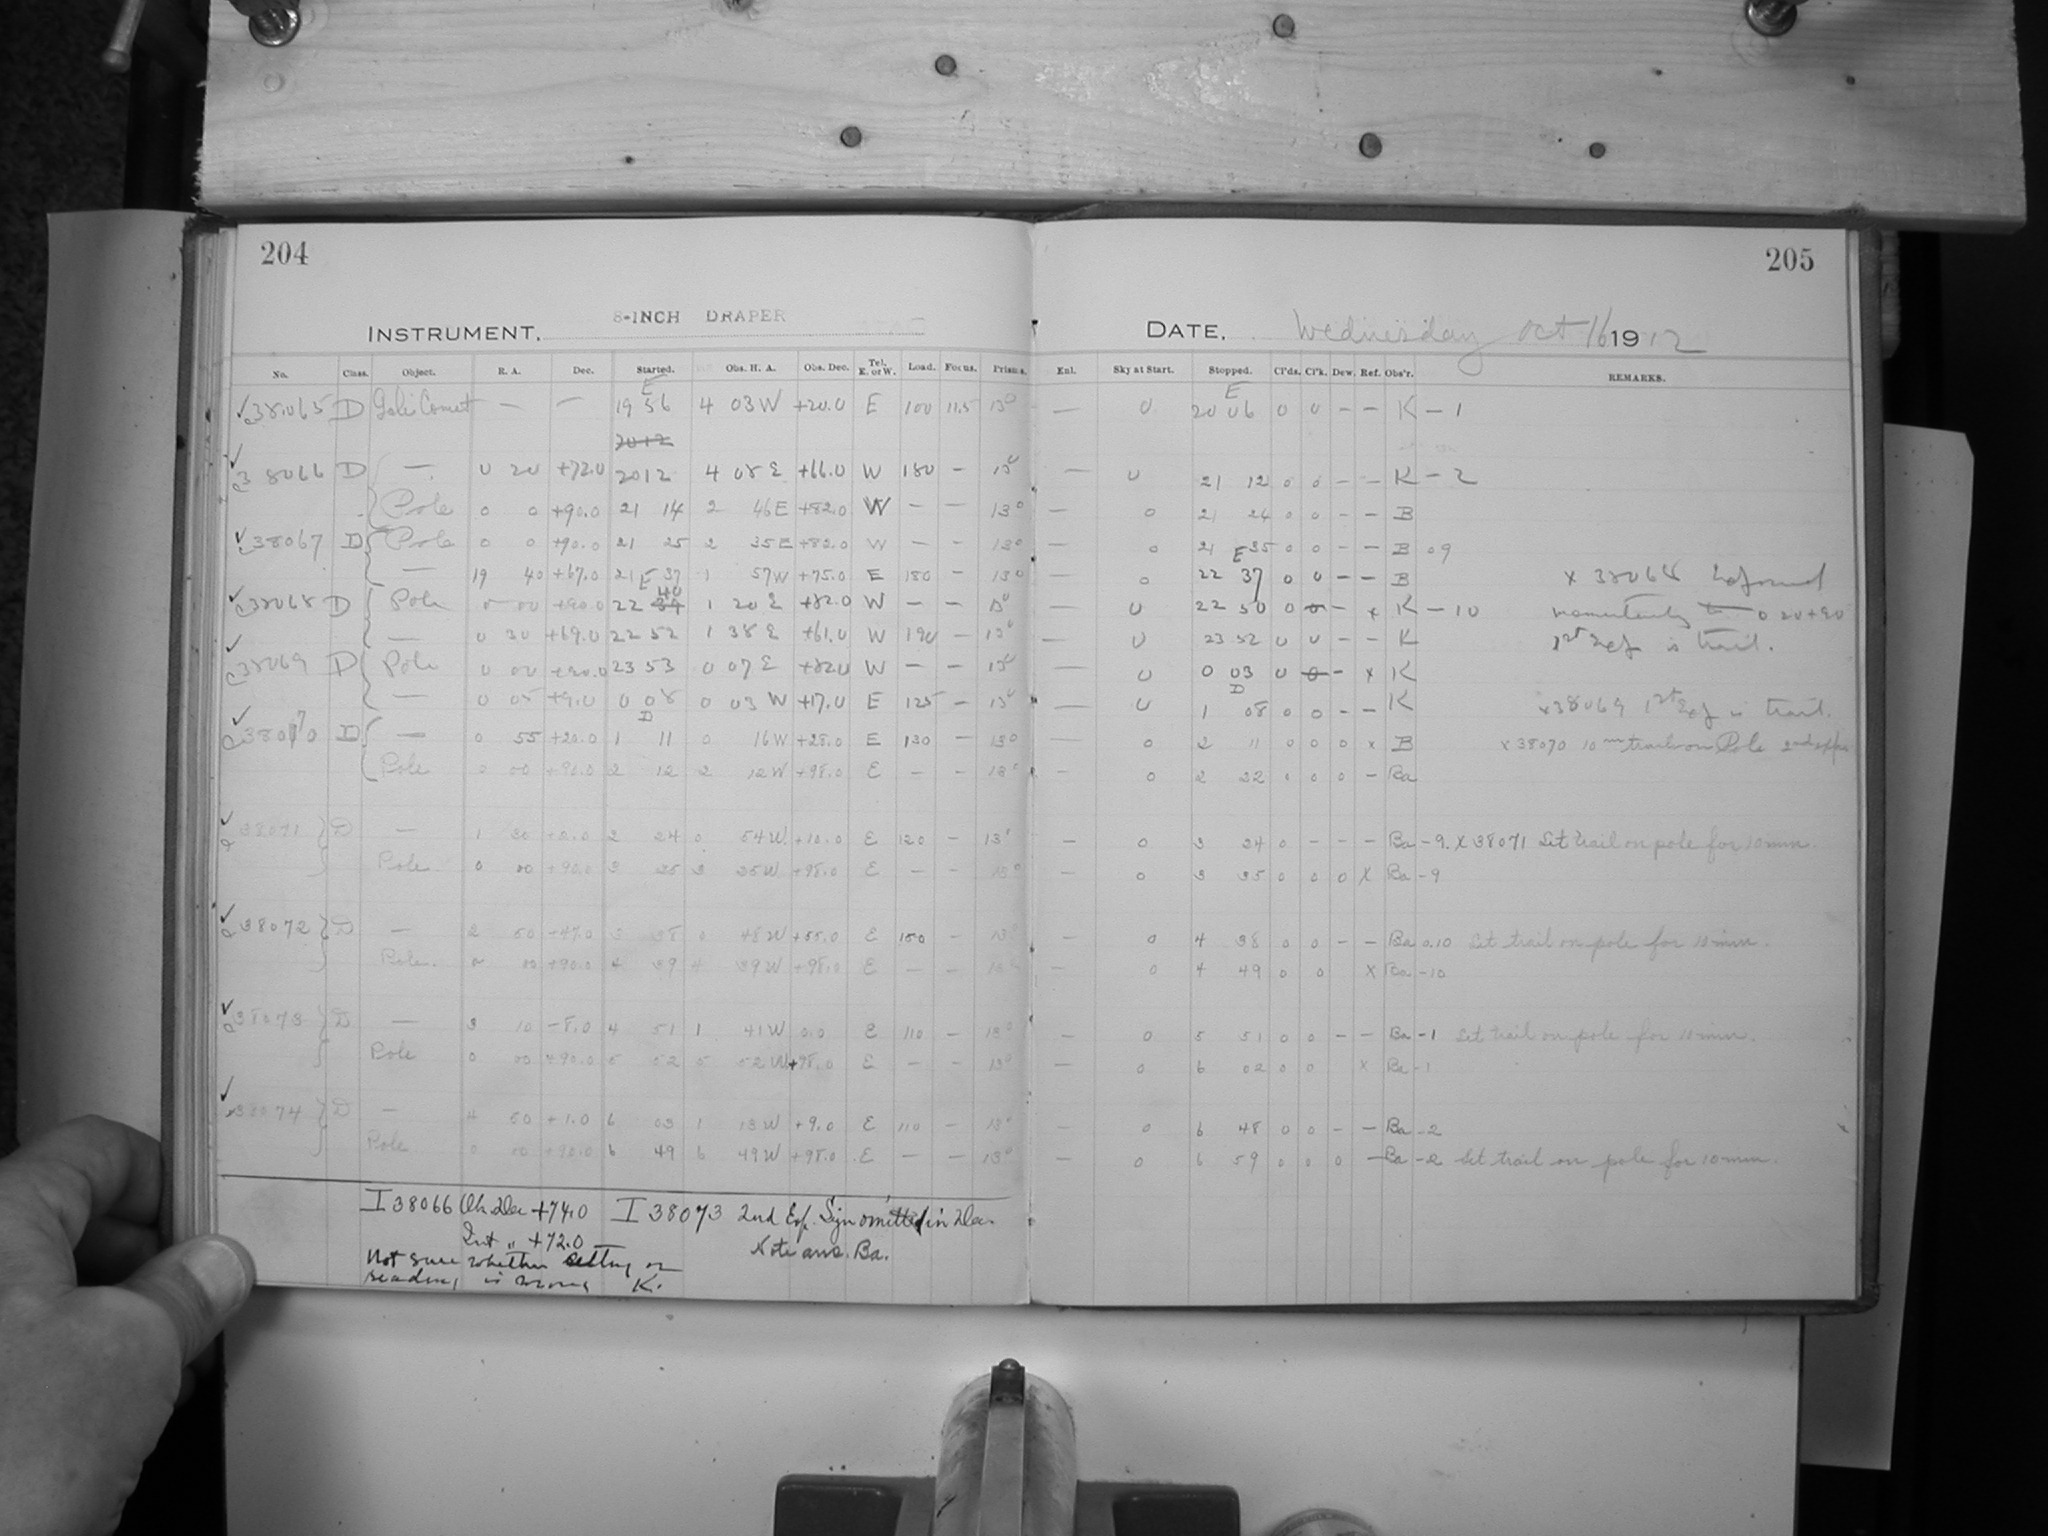 204
205
8-INCH DRAPER
INSTRUMENT.
DATE. Wednesday Oct 16 1912
No. Class. Object. R. A. Dec. Started. Obs. H. A. Obs. Dec. Tel. E. or W. Load. Focus. Prisms. Enl. Sky at Start. Stopped. Cl'ds. Cl'k. Dew. Ref. Obs'r. REMARKS.
E E
38065 D Gale's Comet — — 19 56 4 03 W +20.0 E 100 11.5 13° — 0 20 06 0 0 — — K — 1
2012
38066 D — 0 20 +72.0 2012 4 08 E +66.0 W 180 — 13° — 0 21 12 0 0 — — K — 2
Pole 0 0 +90.0 21 14 2 46 E +82.0 W — — 13° — 0 21 24 0 0 — — B
38067 D Pole 0 0 +90.0 21 25 2 35 E +82.0 W — — 13° — 0 21 35 0 0 — — B 09
— 19 40 +67.0 21 37 1 57 W +75.0 E 180 — 13° — 0 22 37 0 0 — — B x 38068
38068 D Pole 0 00 +90.0 22 40 1 20 E +82.0 W — — 13° — 0 22 50 0 0 — x K — 10 momentarily to 0 20 + 90
— 0 30 +69.0 22 52 1 38 E +61.0 W 190 — 13° — 0 23 52 0 0 — — K 1st is trail.
38069 D Pole 0 00 +90.0 23 53 0 07 E +82.0 W — — 13° — 0 0 03 0 0 — x K
— 0 05 +9.0 0 08 0 03 W +17.0 E 125 — 13° — 0 1 08 0 0 — — K x 38069 1st Exp is trail.
38070 D — 0 55 +20.0 1 11 0 16 W +28.0 E 130 — 13° — 0 2 11 0 0 0 x B x 38070 10m trail on Pole 2nd
Pole 0 00 +90.0 2 12 2 12 W +98.0 E — — 13° — 0 2 22 0 0 0 — Ba
38071 D — 1 30 +2.0 2 24 0 54 W +10.0 E 120 — 13° — 0 3 24 0 — — — Ba — 9. x 38071 Set trail on pole for 10 min.
Pole 0 00 +90.0 3 25 3 25 W +98.0 E — — 13° — 0 3 35 0 0 0 x Ba — 9
38072 D — 2 50 +47.0 3 38 0 48 W +55.0 E 150 — 13° — 0 4 38 0 0 — — Ba 0.10 Set trail on pole for 10 min.
Pole 0 00 +90.0 4 39 4 39 W +98.0 E — — 13° — 0 4 49 0 0 x Ba — 10
38073 D — 3 10 -8.0 4 51 1 41 W 0.0 E 110 — 13° — 0 5 51 0 0 — — Ba — 1 Set trail on pole for 10 min.
Pole 0 00 +90.0 5 52 5 52 W +98.0 E — — 13° — 0 6 02 0 0 x Ba — 1
38074 D — 4 50 +1.0 6 03 1 13 W +9.0 E 110 — 13° — 0 6 48 0 0 — — Ba — 2
Pole 0 00 +90.0 6 49 6 49 W +98.0 E — — 13° — 0 6 59 0 0 0 — Ba — 2 Set trail on pole for 10 min.
I 38066 Ob. Dec +74.0 I 38073 2nd Exp. Sign omitted in Dec.
" +72.0 Note ans. Ba.
Not sure whether setting or
reading is wrong K.